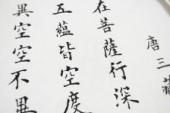 唐三藏
在菩薩行深
五蘊皆空度
異空空不異